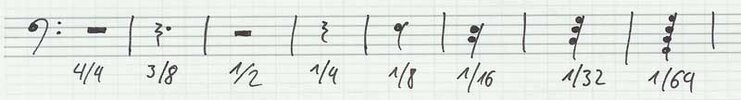 4/4 3/8 1/2 1/4 1/8 1/16 1/32 1/64